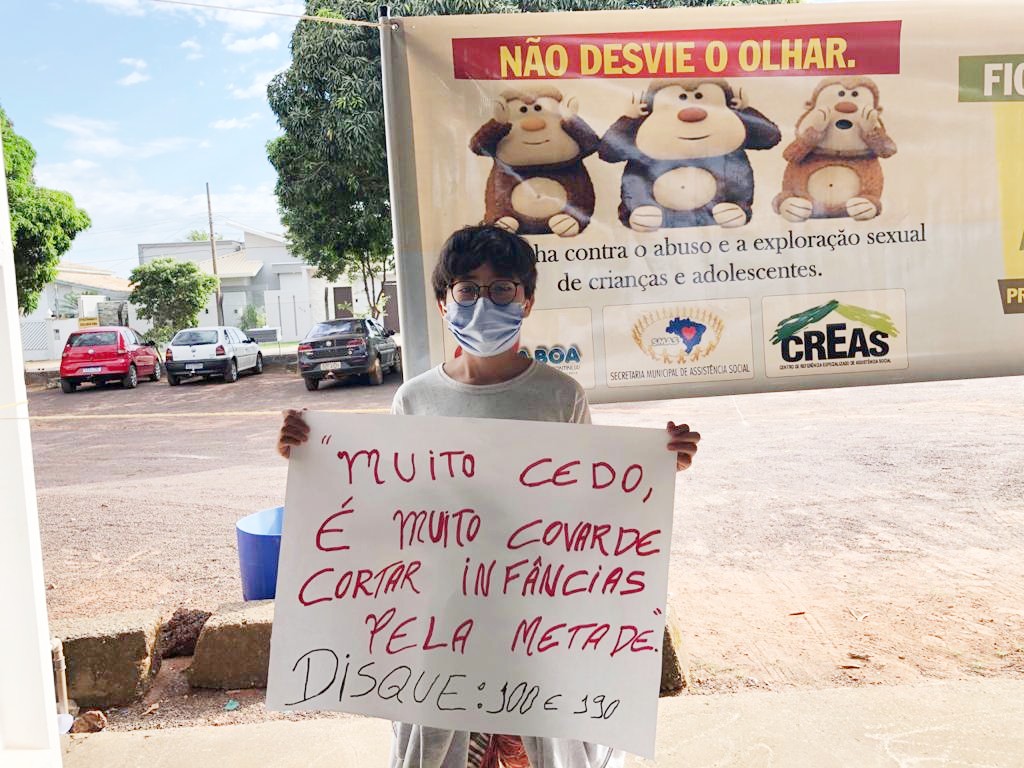 NÃO DESVIE O OLHAR.
contra o abuso e a exploração sexual
de crianças e adolescentes.
BOA
SMAS
SECRETARIA MUNICIPAL DE ASSISTÊNCIA SOCIAL
CREAS
CENTRO DE REFERÊNCIA ESPECIALIZADO DE ASSISTÊNCIA SOCIAL
"MUITO CEDO,
É MUITO COVARDE
CORTAR INFÂNCIAS
PELA METADE."
DISQUE: 100 E 190